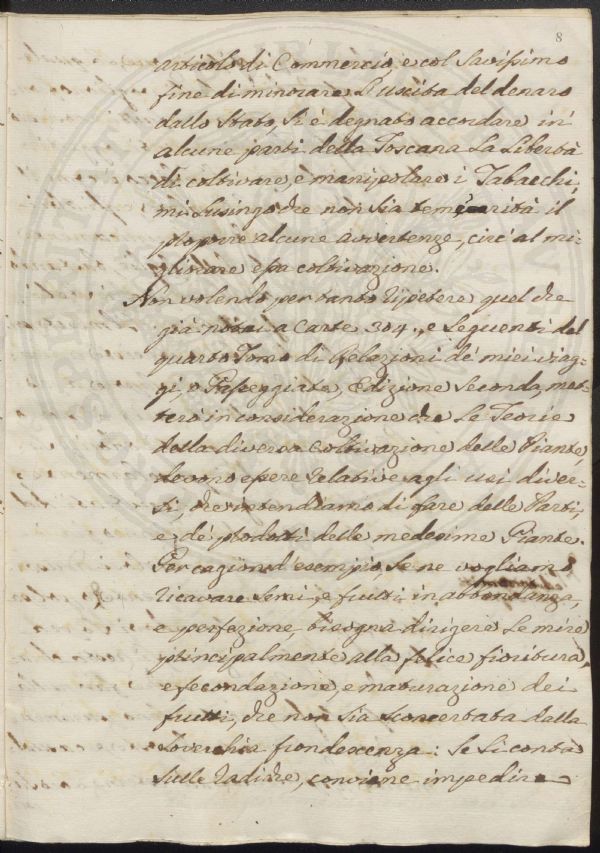 8
articolo di Commercio, e col Savissimo
fine di minorare l'uscita del denaro
dallo Stato, si è degnato accordare in
alcune parti della Toscana La Libertà
di coltivare, e manipolare i Tabacchi,
mi Lusingo che non sia temerità il
proporre alcune avvertenze, circ'al mi-
gliorare essa coltivazione.
Non volendo per tanto ripetere quel che
già notai a Carte 304., e Seguenti del
quarto Tomo di Relazioni de' miei viag-
gi, Edizione Seconda, met-
terò in considerazione che Le Teorie
della diversa Coltivazione delle Piante,
devono essere relative agli usi diver-
si, che intendiamo di fare delle Parti,
e de' prodotti delle medesime Piante.
Per cagion d'esempio, Se ne vogliamo
ricavare Semi, e frutti in abbondanza,
e perfezione, bisogna dirigere Le mire
principalmente alla felice fioritura,
e fecondazione, e maturazione dei
frutti, che non sia sconcertata dalla
Soverchia frondescenza: Se Si conta
Sulle radiche, conviene impedire